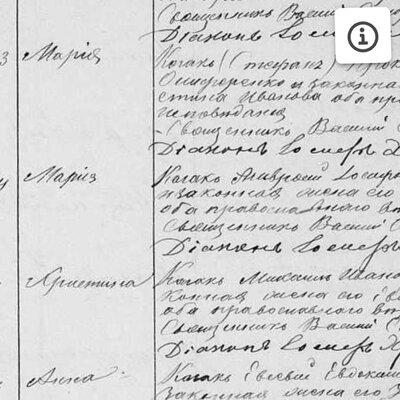 Священникъ Василій
Діаконъ Іосифъ
Марія
Козакъ
Онуфренко и законная
Иванова оба пра
исповѣданія
Священникъ Василій
Діаконъ Іосифъ
Марія
Козакъ Іосиф
и законная жена его
оба православнаго в
Священникъ Василій
Діаконъ Іосифъ
Христина
Козакъ Михаилъ Ивано
конная жена его
оба православнаго
Священникъ Василій
Діаконъ Іосифъ
Анна
Козакъ Евдоким
Законная жена его